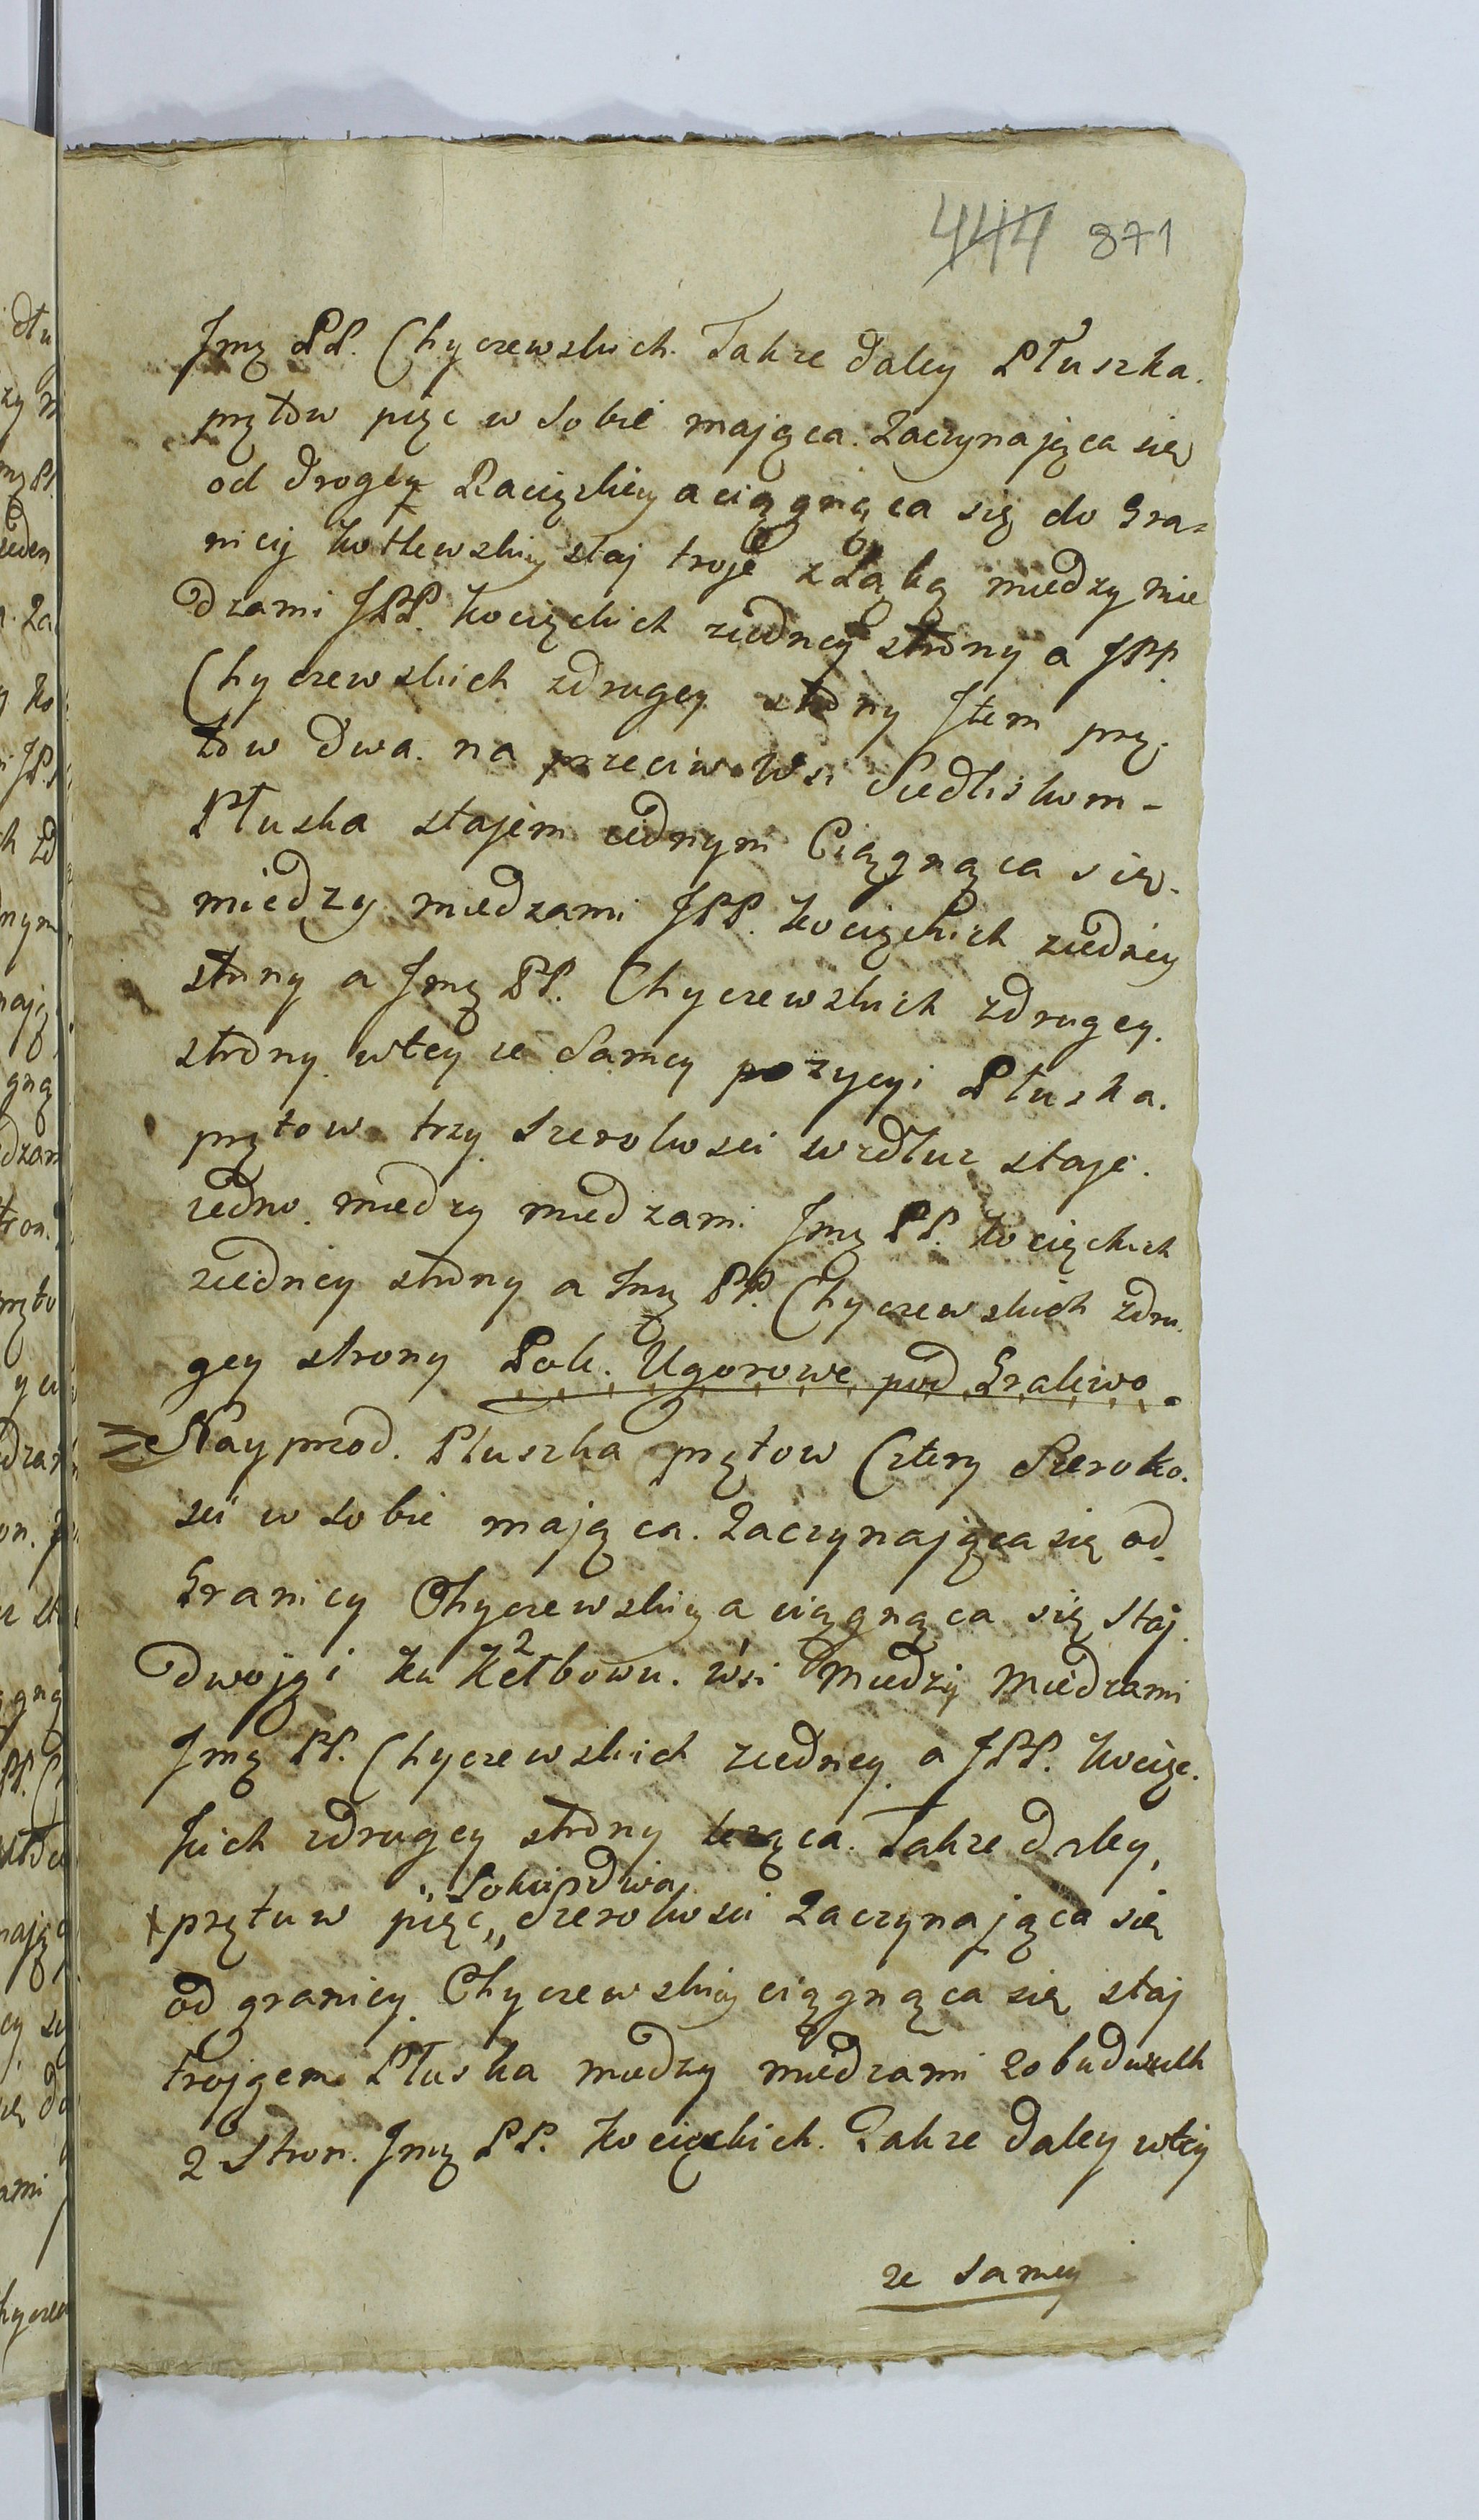 444 871
Jmę PP. Chyczewskich. Takze daley Płuszka.
prętow pięc w Sobie mająca. Zaczynająca się
od drogi Raciąskiey a ciągnąca się do Gra=
nicy Kotłewskiey staj troje z Łąką miedzy mie
dzami JPP. Kocięckich ziedney strony a JPP.
Chyczewskich zdrugey strony Jtem prę;
tow dwa. na przeciw Wsi Siedliskom -
Płuska stajem iednym Ciągnąca się.
miedzy miedzami JPP. Kocięckich ziedney
strony a Jmę PP. Chyczewskich zdrugey.
strony wtey ze Samey pozycyi Płuska.
prętow trzy Szerokosci wzdłuz staje.
iedno. miedzy miedzami Jmę PP. Kocięckich
ziedney strony a Jmę PP. Chyczewskich zdru.
gey strony Pole. Ugorowe pod Gralewo.
Nayprzod. Płuszka prętow Cztery Szeroko.
sci w sobie mająca. Zaczynająca się od
Granicy Chyczewskiey a ciągnąca się staj.
dwojgi ku Kełbowu. wsi Miedzy Miedzami
Jmę PP. Chyczewskich ziedney. a JPP. Kocięc.
kich zdrugey strony leząca. Takze daley,
„ Łokci dwa
x prętuw pięc „ Szerokosci Zaczynająca się
od granicy Chyczewskiey ciągnąca się staj
trojgem Płuska miedzy miedzami zobudwuch
2 Stron. Jmę PP. Kocięckich. Takze daley wtey
ze samey